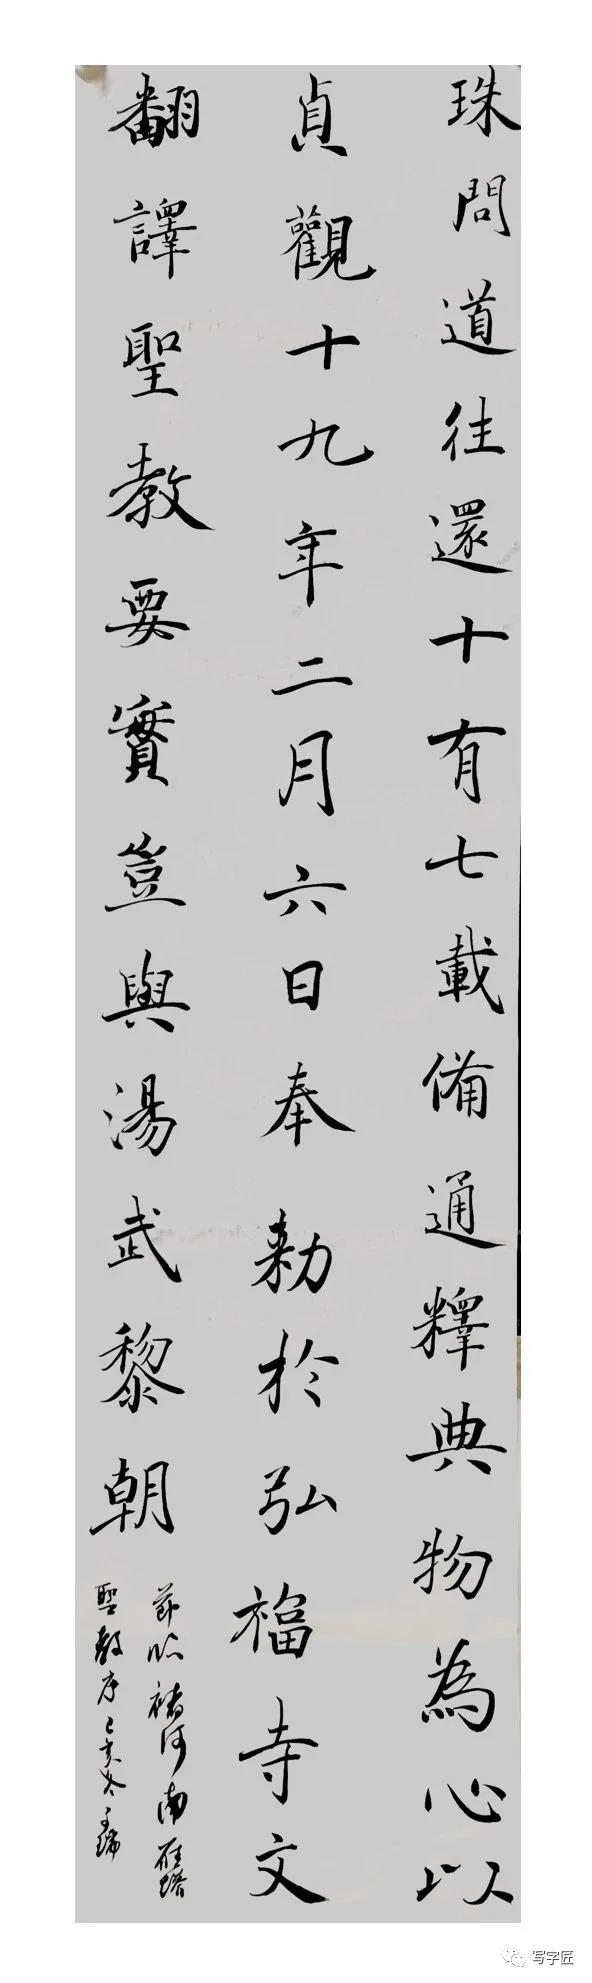 珠問道往還十有七載備通釋典物為心以
貞觀十九年二月六日奉勅於弘福寺文
翻譯聖教要實豈與湯武黎朝
節臨褚河南雁塔
聖教序己亥冬
写字匠